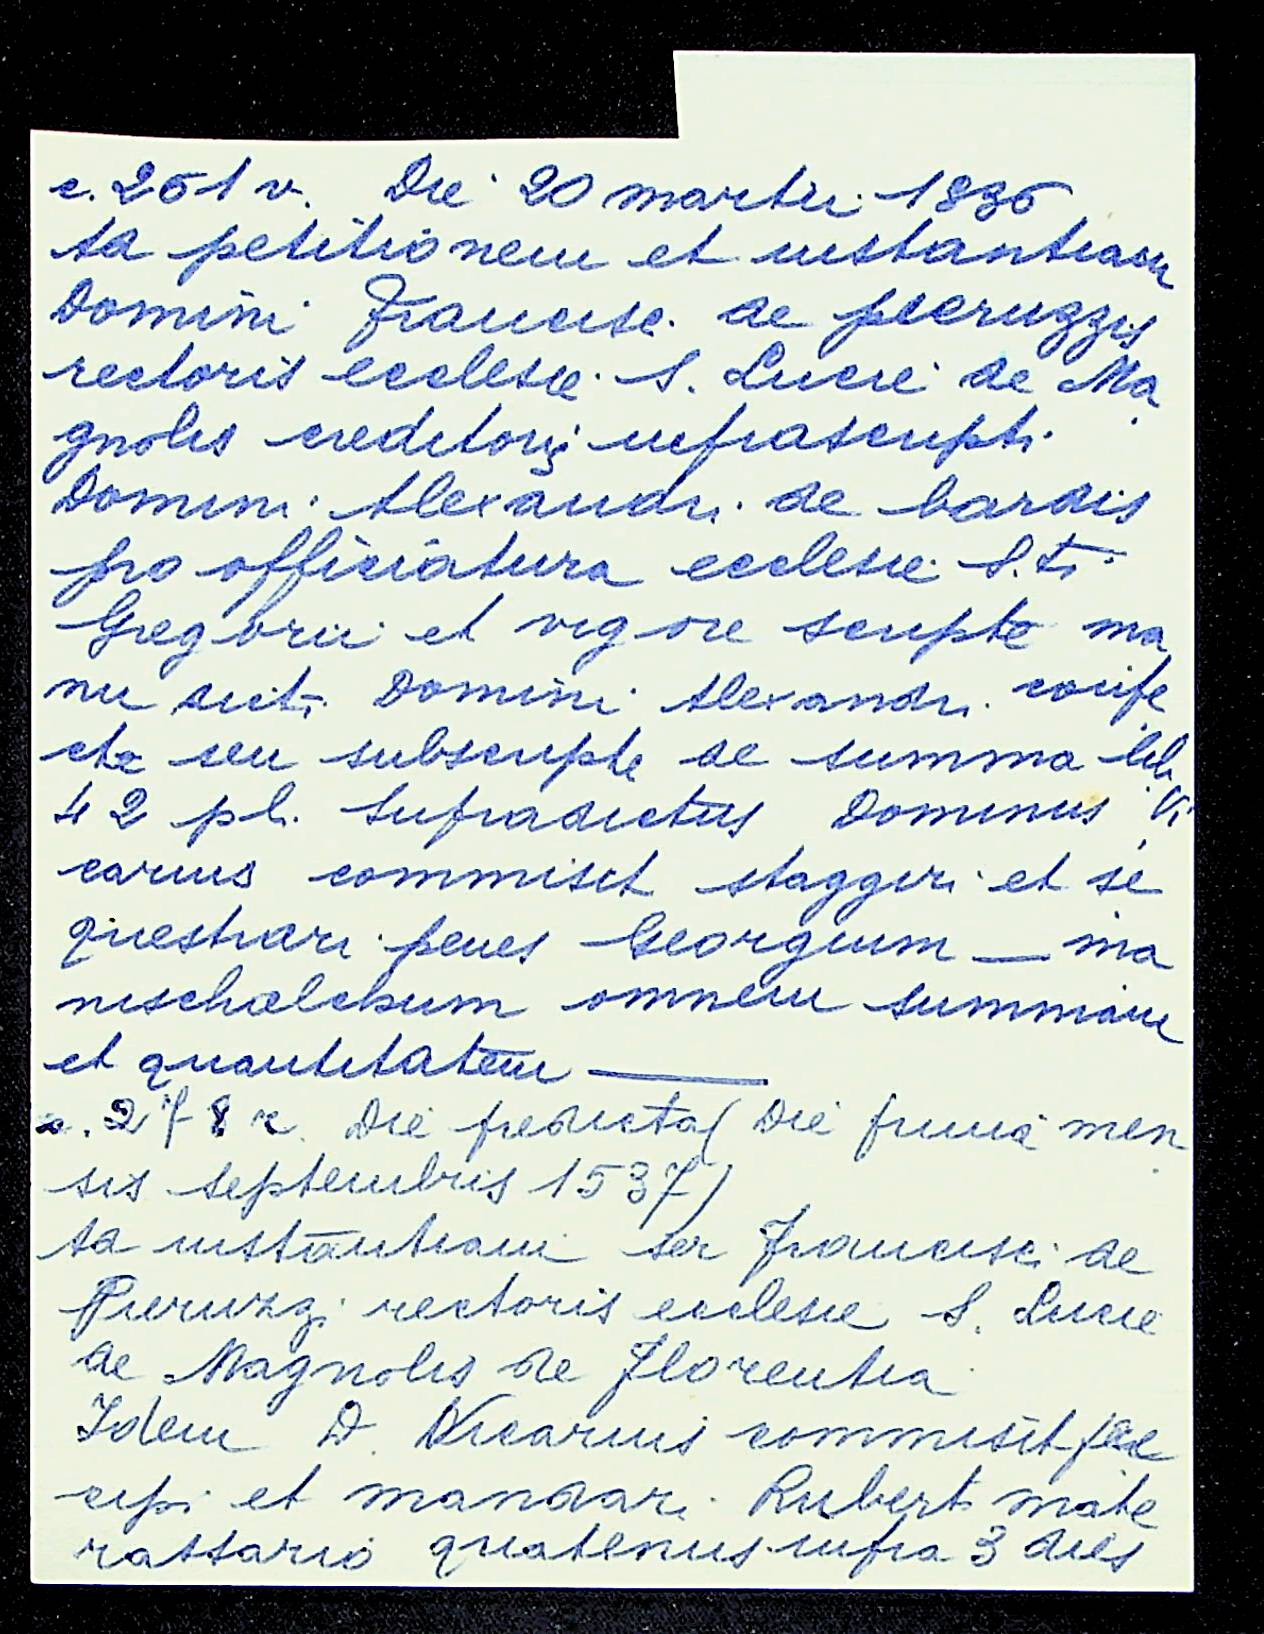 c. 251 v. Die 20 martii 1536
ta petitionem et instantiam
Domini Francisc. de pieruzzis
rectoris ecclesie S. Lucie de Ma
gnolis creditoris infrascripti
Domini Alexandri de bardis
pro officiatura ecclesie S.ti
Gregorii et vigore scripte ma
nu dicti Domini Alexandri confe
cte seu subscripte de summa lib.
42 pl. Sufradictus Dominus Vi
carius commisit staggiri et se
questrari penes Georgium — ma
nischalchum omnem summam
et quantitatem —
c. 278 r. Die predicta (Die prima men
sis septembris 1537)
ta instantiam ser Francisci de
Pieruzzi rectoris ecclesie S. Lucie
de Magnolis de Florentia
Idem D. Vicarius commisit pre
cipi et mandari Ruberto mate
rassario quatenus infra 3 dies